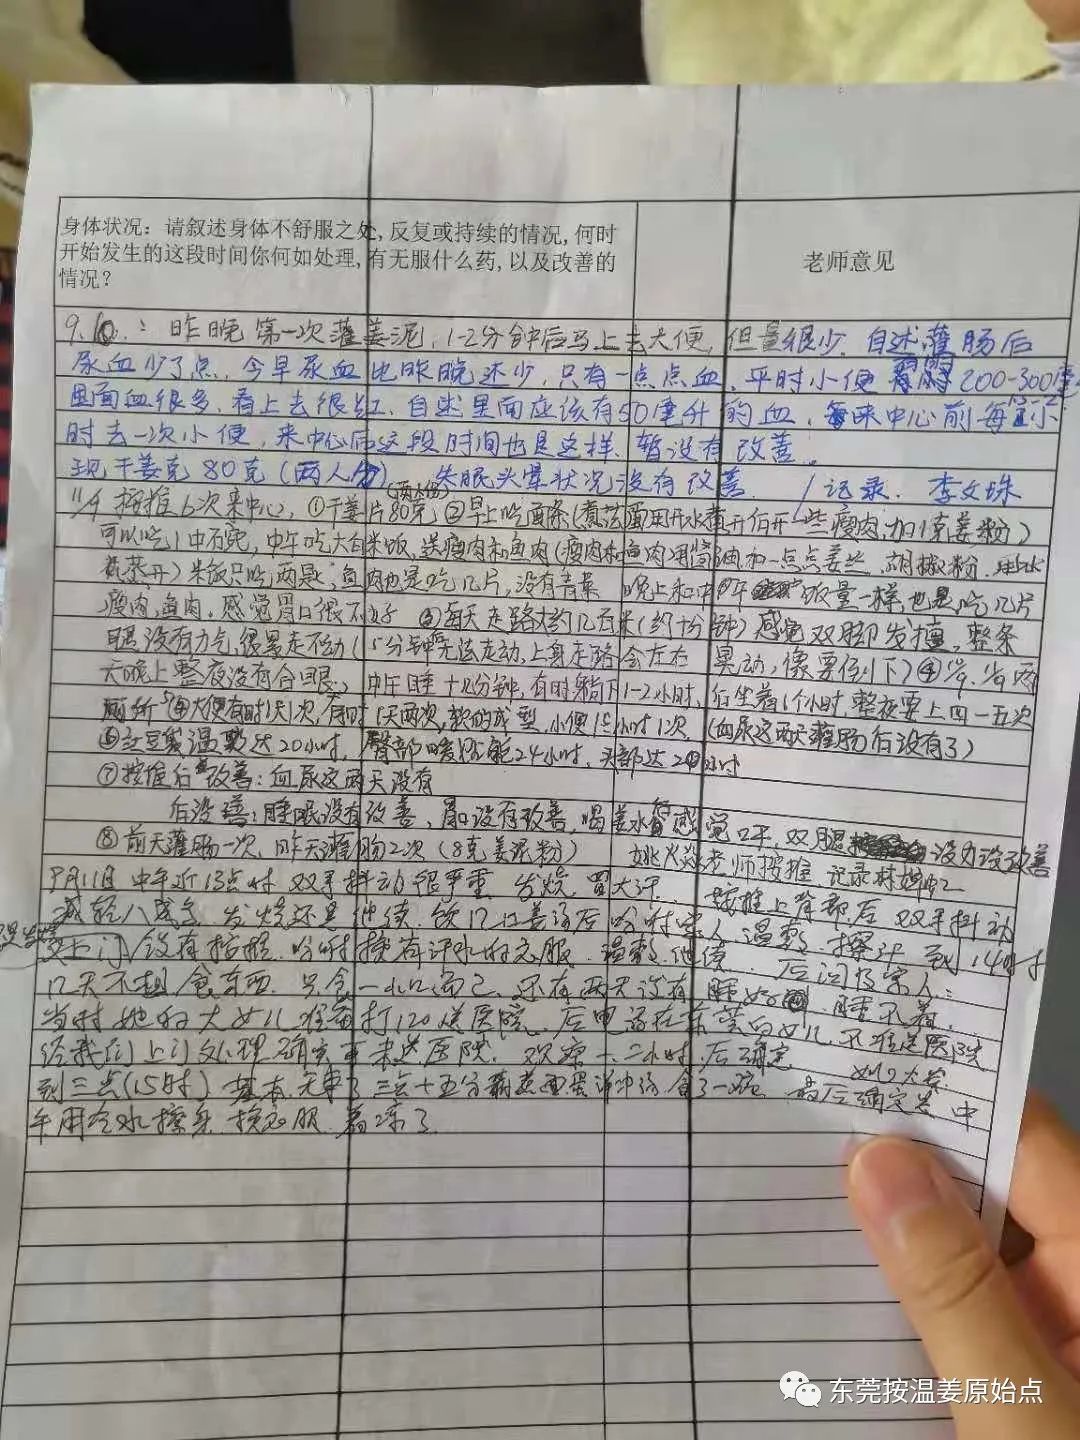 身体状况：请叙述身体不舒服之处，反复或持续的情况，何时
开始发生的这段时间你何如处理，有无服什么药，以及改善的
情况？
老师意见
9.10：昨晚第一次灌姜泥，1-2分钟后马上去大便，但量很少，自述灌肠后
尿血少了点，今早尿血比昨晚还少，只有一点点血，平时小便 200-300毫
里面血很多，看上去很红，自述里面应该有50毫升的血，每来中心前每 小
时去一次小便，来中心后这段时间也是这样，暂没有改善
现干姜克80克（两人份） 失眠头晕状况没有改善。 / 记录．李文珠
11/9 按推6次来中心，①干姜片80克（两人份）②早上吃面条（煮法面用开水煮开 一些瘦肉，加1克姜粉）
可以吃1中石碗，中午吃大白米饭，送瘦肉和鱼肉（瘦肉和鱼肉用酱油和一点点姜丝，胡椒粉，
）米饭只吃两 鱼肉也是吃几片，没有青菜 晚上和中午 饭量一样，也是吃几片
瘦肉，鱼肉。感觉胃口很不好 ③每天走路大约几百米（约十分钟）感觉双脚发 ，整条
腿没有力气，很累走不动（5分钟 无法走动，上身走路会左右晃动，像要倒下）④ 两
天晚上整夜没有合眼， 中午睡十几分钟，有时躺下1-2小时，后坐着1个小时，整夜要上四一五次
厕所 ⑤大便有时1天1次，有时1天两次，软的成型，小便1 小时1次，（血尿这两天灌肠后没有了）
⑥红豆袋温敷达20小时，臀部 24小时，头部达2 小时
⑦按推后改善：血尿这两天没有
后没善：睡眠没有改善，胃口没有改善，喝姜水 感觉 ，双腿 没力没改善
⑧前天灌肠一次，昨天灌肠2次（8克姜泥粉） 姚 老师按推，记录林
9月11日 中午近13点时 双手抖动很严重，发烧，冒大汗， 按推上背部后 双手抖动
减轻八成多，发烧还是继续，饮几口姜汤后吩咐家人温敷，擦汗 到14时
上门 没有按推，吩咐换有汗水的衣服，温敷继续， 后询及家人：
几天不想食东西，只食一小口而已，还有两天没有睡好 ，睡不着，
当时她的大女儿准备打120送医院， 后电话在东莞的女儿，不准送医院
经我们上门处理 未送医院，观察一、二小时，后确定
到三点（15时）基本无事了 三点十五分 蛋 食了一碗 最后确定是中
午用冷水擦身，换衣服，着凉了。
东莞按温姜原始点